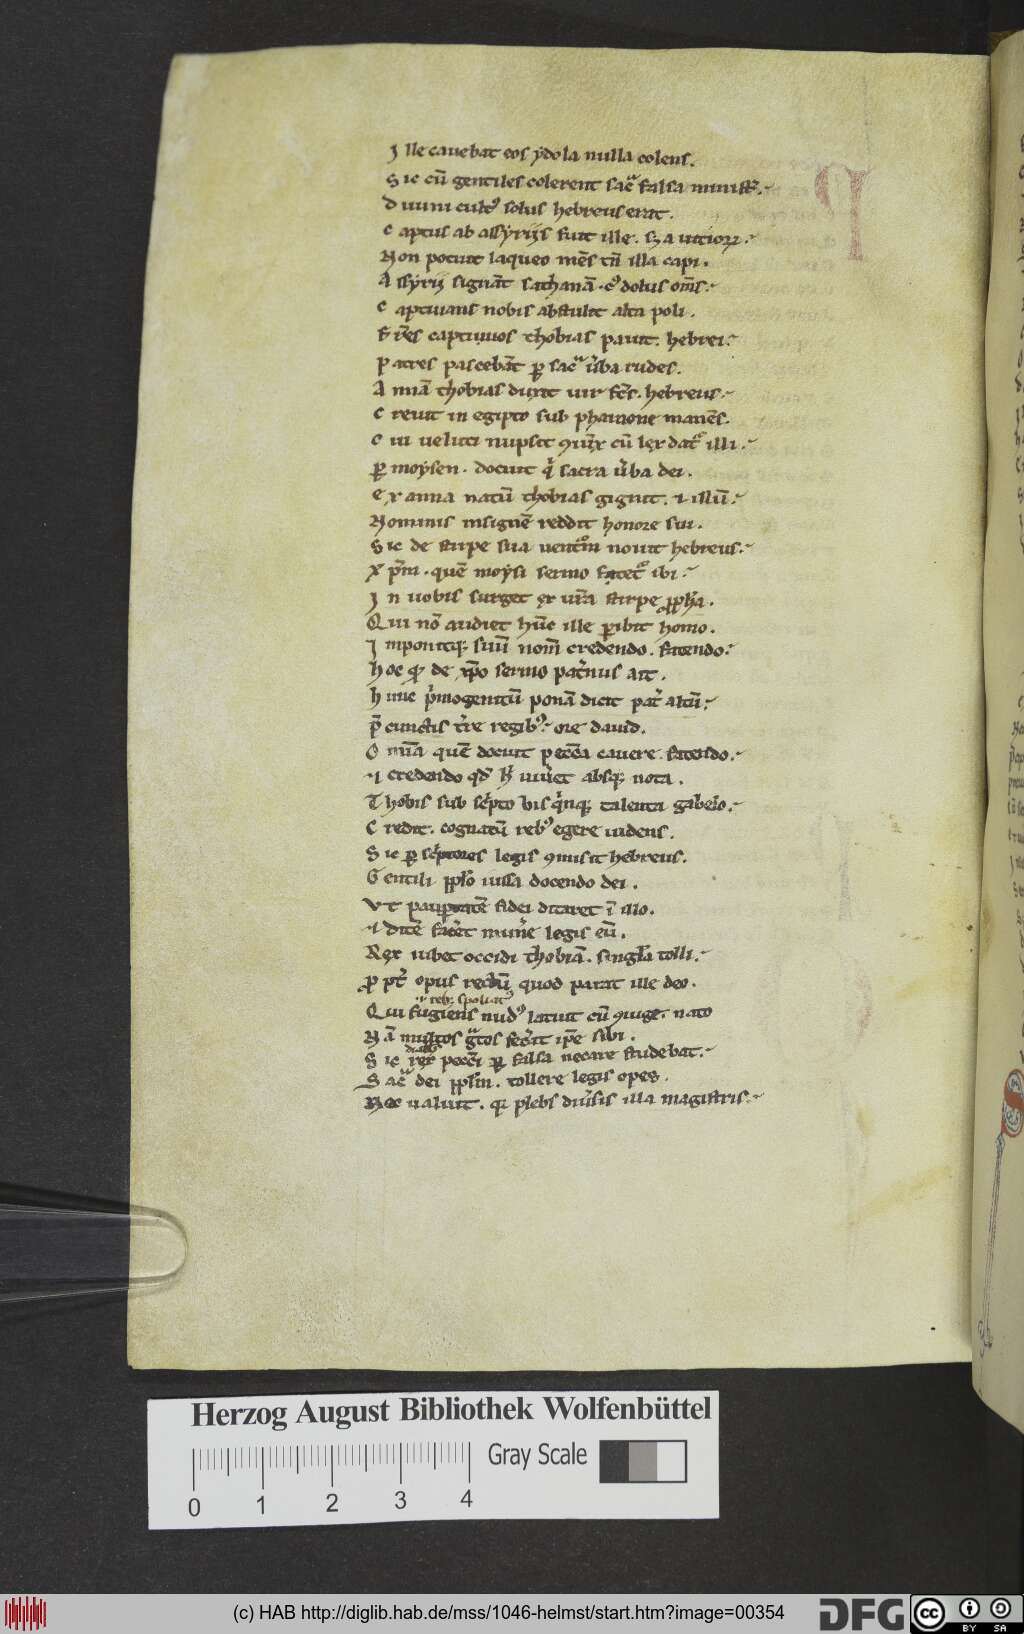 Ille cauebat eos ydola nulla colens.
Sic cū gentiles colerent sac̄ falsa ministͬ.
Diuini cultꝰ solus hebreus erat.
Captus ab assyrijs fuit ille. sꝫ a uitioꝝ.
Non potuit laqueo mēs tn̄ illa capi.
Assyrii signāt sathanā. cꝰ dolus om̄s.
Captiuans nobis abstulit alta poli.
Fr̄es captiuuos thobias pauit. hebrei.
Patres pascebāt ꝑ sacͣ u̍ba rudes.
Annā thobias duxit uir fc̄s. hebreus.
Creuit in egipto sub pharaone manēs.
Cui ueluti nupsit ꝯiūx cū lex datᷣ illi.
ꝑ moysen. docuit qͥ sacra u̍ba dei.
Ex anna natū thobias gignit. ⁊ illū.
Nominis insignē reddit honore sui.
Sic de stirpe sua uentͦm nouit hebreus.
Xp̄m. quē moysi sermo fatetᷣ ibi.
In uobis surget ex ur̄a stirpe ꝓph̄a.
Qui nō audiet hūc ille ꝑibit homo.
Imponitqꝫ suū nom̄ credendo. fatendo.
hoc de xp̄o sermo pat̍nus ait.
hunc pͥmogenitū ponā dicit pat̍ altū.
p̄ cunctis t̍re regibꝰ. ore dauid.
Omīa quē docuit pecc̄a cauere. fatendo.
⁊ credendo qd̄ uiu̍et absqꝫ nota.
Thobis sub scͥpto bis qͥnqꝫ talenta gabelo.
Credit. cognatū rebꝰ egere uidens.
Sic ꝑ scͥptores legis ꝯmisit hebreus.
Gentili pp̄lo iussa docendo dei.
Vt paup̱tatē fidei ditaret ī illo.
⁊ ditē fac̍et mun̍e legis eū.
Rex iubet occidi thobiā. singl̄a tolli.
ꝓ pt̍ opus rectū quod parat ille deo.
rebꝫ spoliatꝰ
Qui fugiens nudꝰ latuit cū ꝯiuge. nato
Nā multos gͣtos fec̍at ip̄e sibi.
Sic rex pecc̄i ꝑ falsa necare studebat.
Sacͣ dei pp̄lm. tollere legis opes.
Nec ualuit. qꝫ plebs diu̍sis illa magistris.
Herzog August Bibliothek Wolfenbüttel
Gray Scale
0 1 2 3 4
(c) HAB http://diglib.hab.de/mss/1046-helmst/start.htm?image=00354
DFG
cc
BY SA